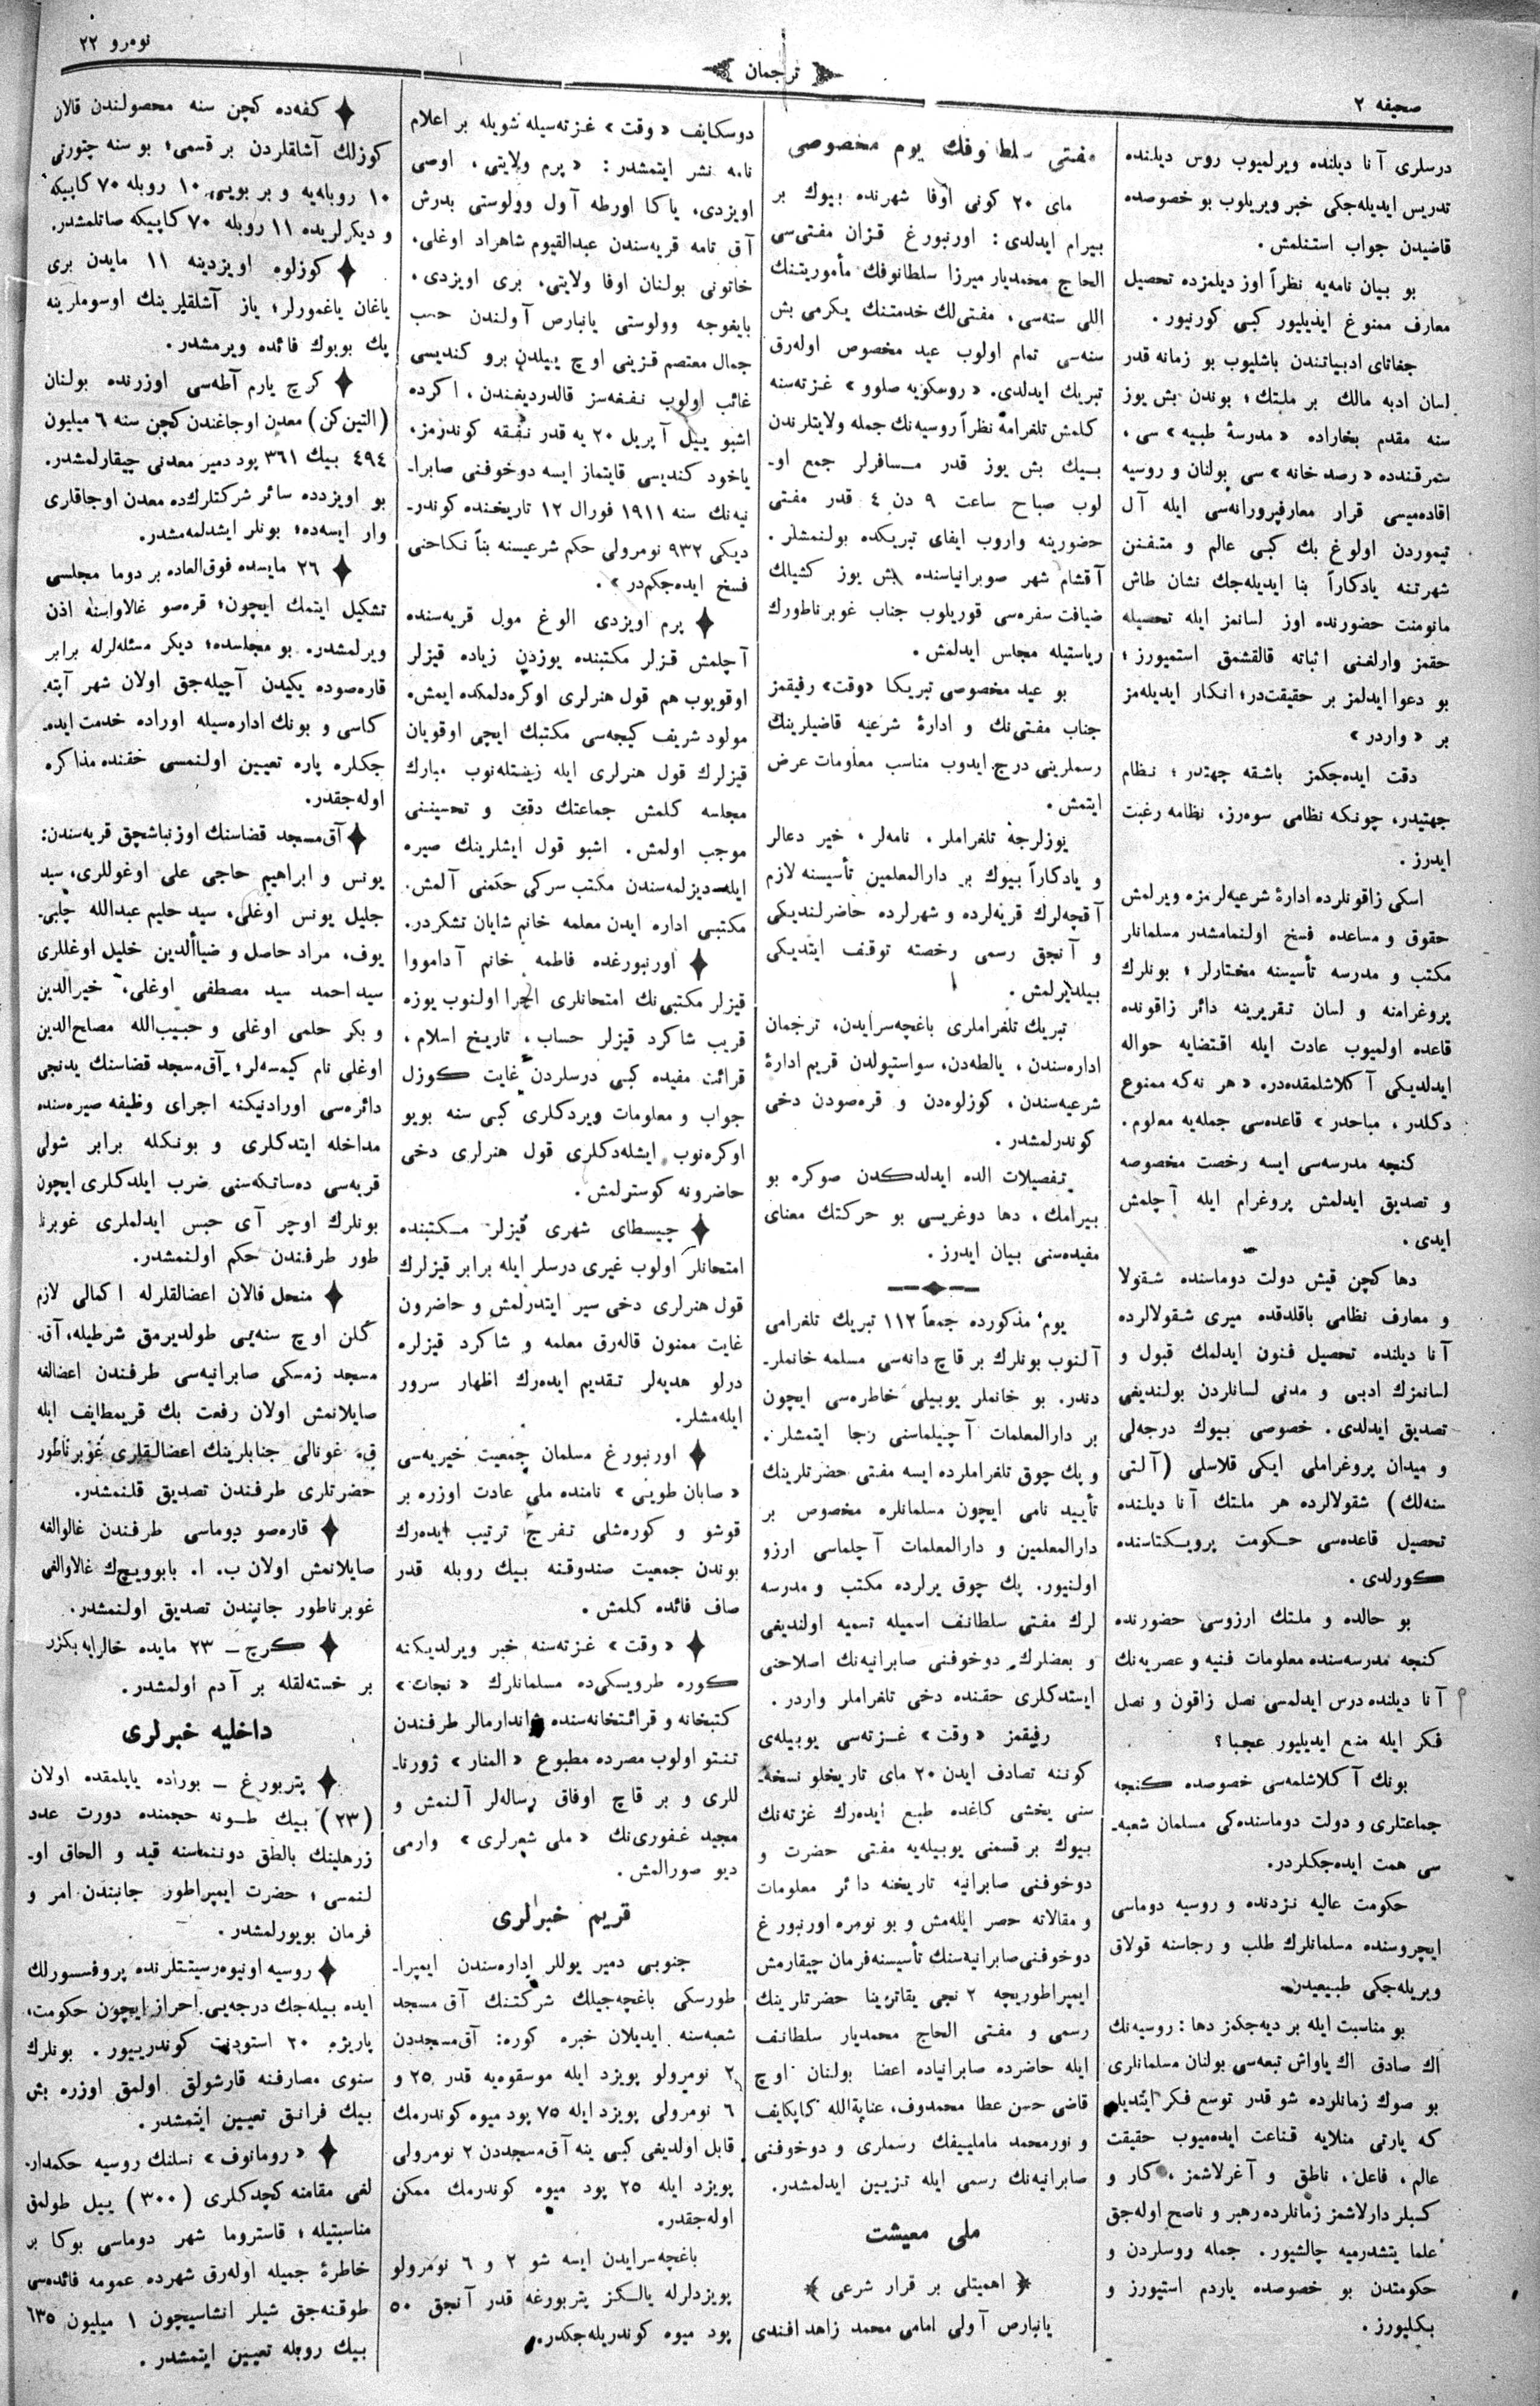 صحیفه ٢
ترجمان
نومرو ٢٢
درسلری آنا دیلنده ویرلمیوب روس دیلنده
تدریس ایدیله‌جکی خبر ویریلوب بو خصوصده
قاضیدن جواب استنلمش .
بو بیان نامه‌یه نظراً اوز دیلمزده تحصیل
معارف ممنوع ایدیلیور کبی کورنیور .
جغاتای ادبیاتندن باشلیوب بو زمانه قدر
لسان ادبه مالك بر ملتك ؛ بوندن بش یوز
سنه مقدم بخاراده « مدرسهٔ طبیه » سی ،
سمرقندده « رصد خانه » سی بولنان و روسیه
اقاده‌میسی قرار معارفپرورانه‌سی ایله آل
تیموردن اولوغ بك كبی عالم و متفنن
شهرتنه یادکاراً بنا ایدیله‌جك نشان طاش
مانومنت حضورنده اوز لسانمز ایله تحصیله
حقمز وارلغنی اثباته قالقشمق استمیورز ؛
بو دعوا ایدلمز بر حقیقت‌در ؛ انکار ایدیله‌مز
بر « واردر »
دقت ایده‌جکمز باشقه جهتدر ؛ نظام
جهتیدر، چونکه نظامی سوه‌رز، نظامه رغبت
ایدرز .
اسکی زاقونلرده ادارهٔ شرعیه‌لرمزه ویرلمش
حقوق و مساعده فسخ اولنمامشدر مسلمانلر
مکتب و مدرسه تأسیسنه مختارلر ؛ بونلرك
پروغرامنه و لسان تقریرینه دائر زاقونده
قاعده اولمیوب عادت ایله اقتضایه حواله
ایدلدیکی آکلاشلمقده‌در. « هر نه‌که ممنوع
دکلدر ، مباحدر » قاعده‌سی جمله‌یه معلوم .
کنجه مدرسه‌سی ایسه رخصت مخصوصه
و تصدیق ایدلمش پروغرام ایله آچلمش
ایدی .
دها کچن قیش دولت دوماسنده شقولا
و معارف نظامی باقلدقده میری شقولالرده
آنا دیلنده تحصیل فنون ایدلمك قبول و
لسانمزك ادبی و مدنی لسانلردن بولندیغی
تصدیق ایدلدی . خصوصی بیوك درجه‌لی
و میدان پروغراملی ایکی قلاسلی ( آلتی
سنه‌لك ) شقولالرده هر ملتك آنا دیلنده
تحصیل قاعده‌سی حکومت پرویکتاسنده
کورلدی .
بو حالده و ملتك ارزوسی حضورنده
کنجه مدرسه‌سنده معلومات فنیه و عصریه‌نك
آنا دیلنده درس ایدلمسی نصل زاقون و نصل
فکر ایله منع ایدیلیور عجبا ؟
بونك آکلاشلمه‌سی خصوصده کنجه
جماعتلری و دولت دوماسنده‌کی مسلمان شعبه‌ـ
سی همت ایده‌جکلردر.
حکومت عالیه نزدنده و روسیه دوماسی
ایچروسنده مسلمانلرك طلب و رجاسنه قولاق
ویریله‌جکی طبیعیدر.
بو مناسبت ایله بر دیه‌جکمز دها : روسیه‌نك
اك صادق اك یاواش تبعه‌سی بولنان مسلمانلری
بو صوك زمانلرده شو قدر توسع فکر ایتدیلر
که یارتی منلایه قناعت ایده‌میوب حقیقت
عالم، فاعل، ناطق و آغرلاشمز ، کار و
کسبلر دارلاشمز زمانلرده رهبر و ناصح اوله‌جق
علما یتشدرمیه چالشیور . جمله روسلردن و
حکومتدن بو خصوصده یاردم استیورز و
بکلیورز .
مفتی سلطانوفك یوم مخصوصی
مای ٢٠ کونی اوفا شهرنده بیوك بر
بیرام ایدلدی : اورنبورغ قزان مفتی‌سی
الحاج محمدیار میرزا سلطانوفك مأموریتنك
اللی سنه‌سی ، مفتی‌لك خدمتنك یکرمی بش
سنه‌سی تمام اولوب عید مخصوص اوله‌رق
تبریك ایدلدی. « روسکویه صلوو » غزته‌سنه
کلمش تلغرامه نظراً روسیه‌نك جمله ولایتلرندن
بیك بش یوز قدر مسافرلر جمع او‌ـ
لوب صباح ساعت ٩ دن ٤ قدر مفتی
حضورینه واروب ایفای تبریکده بولنمشلر .
آقشام شهر صوبرانیاسنده بش یوز کشیلك
ضیافت سفره‌سی قوریلوب جناب غوبرناطورك
ریاستیله مجلس ایدلمش .
بو عید مخصوصی تبریکا « وقت » رفیقمز
جناب مفتی‌نك و ادارهٔ شرعیه قاضیلرینك
رسملرینی درج ایدوب مناسب معلومات عرض
ایتمش .
یوزلرجه تلغراملر ، نامه‌لر ، خیر دعالر
و یادکاراً بیوك بر دارالمعلمین تأسیسنه لازم
آقچه‌لرك قریه‌لرده و شهرلرده حاضرلندیکی
و آنجق رسمی رخصته توقف ایتدیکی
بیلدیرلمش .
تبریك تلغراملری باغچه‌سرایدن، ترجمان
اداره‌سندن ، یالطه‌دن، سواستپولدن قریم ادارهٔ
شرعیه‌سندن ، کوزلوه‌دن و قره‌صودن دخی
کوندرلمشدر .
تفصیلات الده ایدلدکدن صوکره بو
بیرامك ، دها دوغریسی بو حرکتك معنای
مفیده‌سنی بیان ایدرز .
یوم مذکورده جمعاً ١١٢ تبریك تلغرامی
آلنوب بونلرك بر قاچ دانه‌سی مسلمه خانملر‌ـ
دندر. بو خانملر یوبیلی خاطره‌سی ایچون
بر دارالمعلمات آچیلماسنی رجا ایتمشلر .
و پك چوق تلغراملرده ایسه مفتی حضرتلرینك
تأیید نامی ایچون مسلمانلره مخصوص بر
دارالمعلمین و دارالمعلمات آچلماسی ارزو
اولنیور. پك چوق یرلرده مکتب و مدرسه
لرك مفتی سلطانف اسمیله تسمیه اولندیغی
و بعضلرك دوخوفنی صابرانیه‌نك اصلاحنی
ایستدکلری حقنده دخی تلغراملر واردر.
رفیقمز « وقت » غزته‌سی یوبیله‌ی
کوننه تصادف ایدن ٢٠ مای تاریخلو نسخه‌ـ
سنی یخشی کاغده طبع ایده‌رك غزته‌نك
بیوك بر قسمنی یوبیله‌یه مفتی حضرت و
دوخوفنی صابرانیه تاریخنه دائر معلومات
و مقالاته حصر ایله‌مش و بو نومره اورنبورغ
دوخوفنی صابرانیه‌سنك تأسیسنه فرمان چیقارمش
ایمپراطوریچه ٢ نجی یقاترینا حضرتلرینك
رسمی و مفتی الحاج محمدیار سلطانف
ایله حاضرده صابرانیاده اعضا بولنان اوچ
قاضی حسن عطا محمدوف، عنایةالله کاپکایف
و نورمحمد ماملییفك رسملری و دوخوفنی
صابرانیه‌نك رسمی ایله تزیین ایدلمشدر.
ملی معیشت
﴿ اهمیتلی بر قرار شرعی ﴾
یانپارص آولی امامی محمد زاهد افندی
دوسکایف « وقت » غزته‌سیله شویله بر اعلام
نامه نشر ایتمشدر : « پرم ولایتی ، اوصی
اویزدی، یاکا اورطه آول وولوستی بدرش
آق تامه قریه‌سندن عبدالقیوم شاهراد اوغلی،
خاتونی بولنان اوفا ولایتی، بری اویزدی،
بایغوجه وولوستی یانپارص آولندن حبیب
جمال معتصم قزینی اوچ ییلدن برو کندیسی
غائب اولوب نفقه‌سز قالدردیغندن ، اکرده
اشبو ییل آپریل ٢٠ یه قدر نفقه کوندرمز،
یاخود کندیسی قایتماز ایسه دوخوفنی صابرا‌ـ
نیه‌نك سنه ١٩١١ فورال ١٢ تاریخنده کوندر‌ـ
دیکی ٩٣٢ نومرولی حکم شرعیسنه بناً نکاحنی
فسخ ایده‌جکم‌در » .
پرم اویزدی الوغ مول قریه‌سنده
آچلمش قزلر مکتبنده یوزدن زیاده قیزلر
اوقویوب هم قول هنرلری اوکره‌دلمکده ایمش.
مولود شریف کیجه‌سی مکتبك ایچی اوقویان
قیزلرك قول هنرلری ایله زینتله‌نوب مبارك
مجلسه کلمش جماعتك دقت و تحسیننی
موجب اولمش. اشبو قول ایشلرینك صیره
ایله دیزلمه‌سندن مکتب سرکی حکمنی آلمش.
مکتبی اداره ایدن معلمه خانم شایان تشکردر.
اورنبورغده فاطمه خانم آداموا
قیزلر مکتبی‌نك امتحانلری اجرا اولنوب یوزه
قریب شاکرد قیزلر حساب، تاریخ اسلام ،
قرائت مفیده کبی درسلردن غایت کوزل
جواب و معلومات ویردکلری کبی سنه بویو
اوکره‌نوب ایشله‌دکلری قول هنرلری دخی
حاضرونه کوسترلمش .
چیسطای شهری قیزلر مکتبنده
امتحانلر اولوب غیری درسلر ایله برابر قیزلرك
قول هنرلری دخی سیر ایتدرلمش و حاضرون
غایت ممنون قاله‌رق معلمه و شاکرد قیزلره
درلو هدیه‌لر تقدیم ایده‌رك اظهار سرور
ایله‌مشلر.
اورنبورغ مسلمان جمعیت خیریه‌سی
« صابان طویی » نامنده ملی عادت اوزره بر
قوشو و کوره‌شلی تفرج ترتیب ایده‌رك
بوندن جمعیت صندوقنه بیك روبله قدر
صاف فائده کلمش .
« وقت » غزته‌سنه خبر ویرلدیکنه
کوره طرویسکی‌ده مسلمانلرك « نجات »
کتبخانه و قرائتخانه‌سنده ژاندارمالر طرفندن
تنتو اولوب مصرده مطبوع « المنار » ژورنا‌ـ
للری و بر قاچ اوفاق رساله‌لر آلنمش و
مجید غفوری‌نك « ملی شعرلری » وارمی
دیو صورالمش .
قریم خبرلری
جنوبی دمیر یوللر اداره‌سندن ایمپرا‌ـ
طورسکی باغچه‌جیلك شرکتنك آق‌مسجد
شعبه‌سنه ایدیلان خبره کوره: آق‌مسجددن
٢ نومرولو پویزد ایله موسقوه‌یه قدر ٢٥ و
٦ نومرولی پویزد ایله ٧٥ پود میوه کوندرمك
قابل اولدیغی کبی ینه آق‌مسجددن ٢ نومرولی
پویزد ایله ٢٥ پود میوه کوندرمك ممکن
اوله‌جقدر.
باغچه‌سرایدن ایسه شو ٢ و ٦ نومرولو
پویزدلرله یالکز پتربورغه قدر آنجق ٥٠
پود میوه کوندریله‌جکدر.
کفه‌ده کچن سنه محصولندن قالان
کوزلك آشلقلردن بر قسمی؛ بو سنه چتورتی
١٠ روبله‌یه و بر بویی، ١٠ روبله ٧٠ کاپیکه
و دیکرلریده ١١ روبله ٧٠ کاپیکه صاتلمشدر.
کوزلوه اویزدینه ١١ مایدن بری
یاغان یاغمورلر؛ یاز آشلقلرینك اوسوملرینه
پك بویوك فائده ویرمشدر.
کرچ یارم آطه‌سی اوزرنده بولنان
( التین کن ) معدن اوجاغندن کچن سنه ٦ میلیون
٤٩٤ بیك ٣٦١ پود دمیر معدنی چیقارلمشدر.
بو اویزدده سائر شرکتلرك‌ده معدن اوجاقلری
وار ایسه‌ده؛ بونلر ایشدلمه‌مشدر.
٢٦ مایسده فوق‌العاده بر دوما مجلسی
تشکیل ایتمك ایچون؛ قره‌صو غالاواسنه اذن
ویرلمشدر. بو مجلسده؛ دیکر مسئله‌لرله برابر
قاره‌صوده یکیدن آچیله‌جق اولان شهر آپته‌ـ
کاسی و بونك اداره‌سیله اوراده خدمت ایده‌ـ
جکلره پاره تعیین اولنمسی حقنده مذاکره
اوله‌جقدر.
آق‌مسجد قضاسنك اوزنباشچق قریه‌سندن:
یونس و ابراهیم حاجی علی اوغوللری، سید
جلیل یونس اوغلی، سید حلیم عبدالله چلبی‌ـ
یوف، مراد حاصل و ضیاألدین خلیل اوغللری
سید احمد سید مصطفی اوغلی، خیرالدین
و بکر حلمی اوغلی و حبیب‌الله مصلح‌الدین
اوغلی نام کیمسه‌لر؛ آق‌مسجد قضاسنك یدنجی
دائره‌سی اورادنیکنه اجرای وظیفه صیره‌سنده
مداخله ایتدکلری و بونکله برابر شولی
قریه‌سی ده‌ساتکه‌سنی ضرب ایلدکلری ایچون
بونلرك اوچر آی حبس ایدلملری غوبرنا
طور طرفندن حکم اولنمشدر.
منحل قالان اعضالقلرله اکمالی لازم
کلن اوچ سنه‌یی طولدیرمق شرطیله، آق‌ـ
مسجد زمسکی صابرانیه‌سی طرفندن اعضالغه
صایلانمش اولان رفعت بك قریمطایف ایله
ق. غونالی جنابلرینك اعضالقلری غوبرناطور
حضرتلری طرفندن تصدیق قلنمشدر.
قاره‌صو دوماسی طرفندن غالوالغه
صایلانمش اولان ب. ا. بابوویچ‌ك غالاوالغی
غوبرناطور جانبندن تصدیق اولنمشدر.
کرچ — ٢٣ مایده خالرایه بکزر
بر خسته‌لقله بر آدم اولمشدر.
داخلیه خبرلری
پتربورغ — بوراده یاپلمقده اولان
( ٢٣ ) بیك طونه حجمنده دورت عدد
زرهلینك بالطق دوننماسنه قید و الحاق او‌ـ
لنمسی ؛ حضرت ایمپراطور جانبندن امر و
فرمان بویورلمشدر .
روسیه اونیوه‌رسیتتلرنده پروفسسورلك
ایده بیله‌جك درجه‌یی احراز ایچون حکومت،
پاریژه ٢٠ استودنت کوندرییور . بونلرك
سنوی مصارفنه قارشولق اولمق اوزره بش
بیك فرانق تعیین ایتمشدر .
« رومانوف » نسلنك روسیه حکمدار‌ـ
لغی مقامنه کچدکلری ( ٣٠٠ ) ییل طولمق
مناسبتیله ؛ قاستروما شهر دوماسی بوکا بر
خاطرهٔ جمیله اوله‌رق شهرده عمومه فائده‌سی
طوقنه‌جق شیلر انشاسیچون ١ میلیون ٦٣٥
بیك روبله تعیین ایتمشدر .